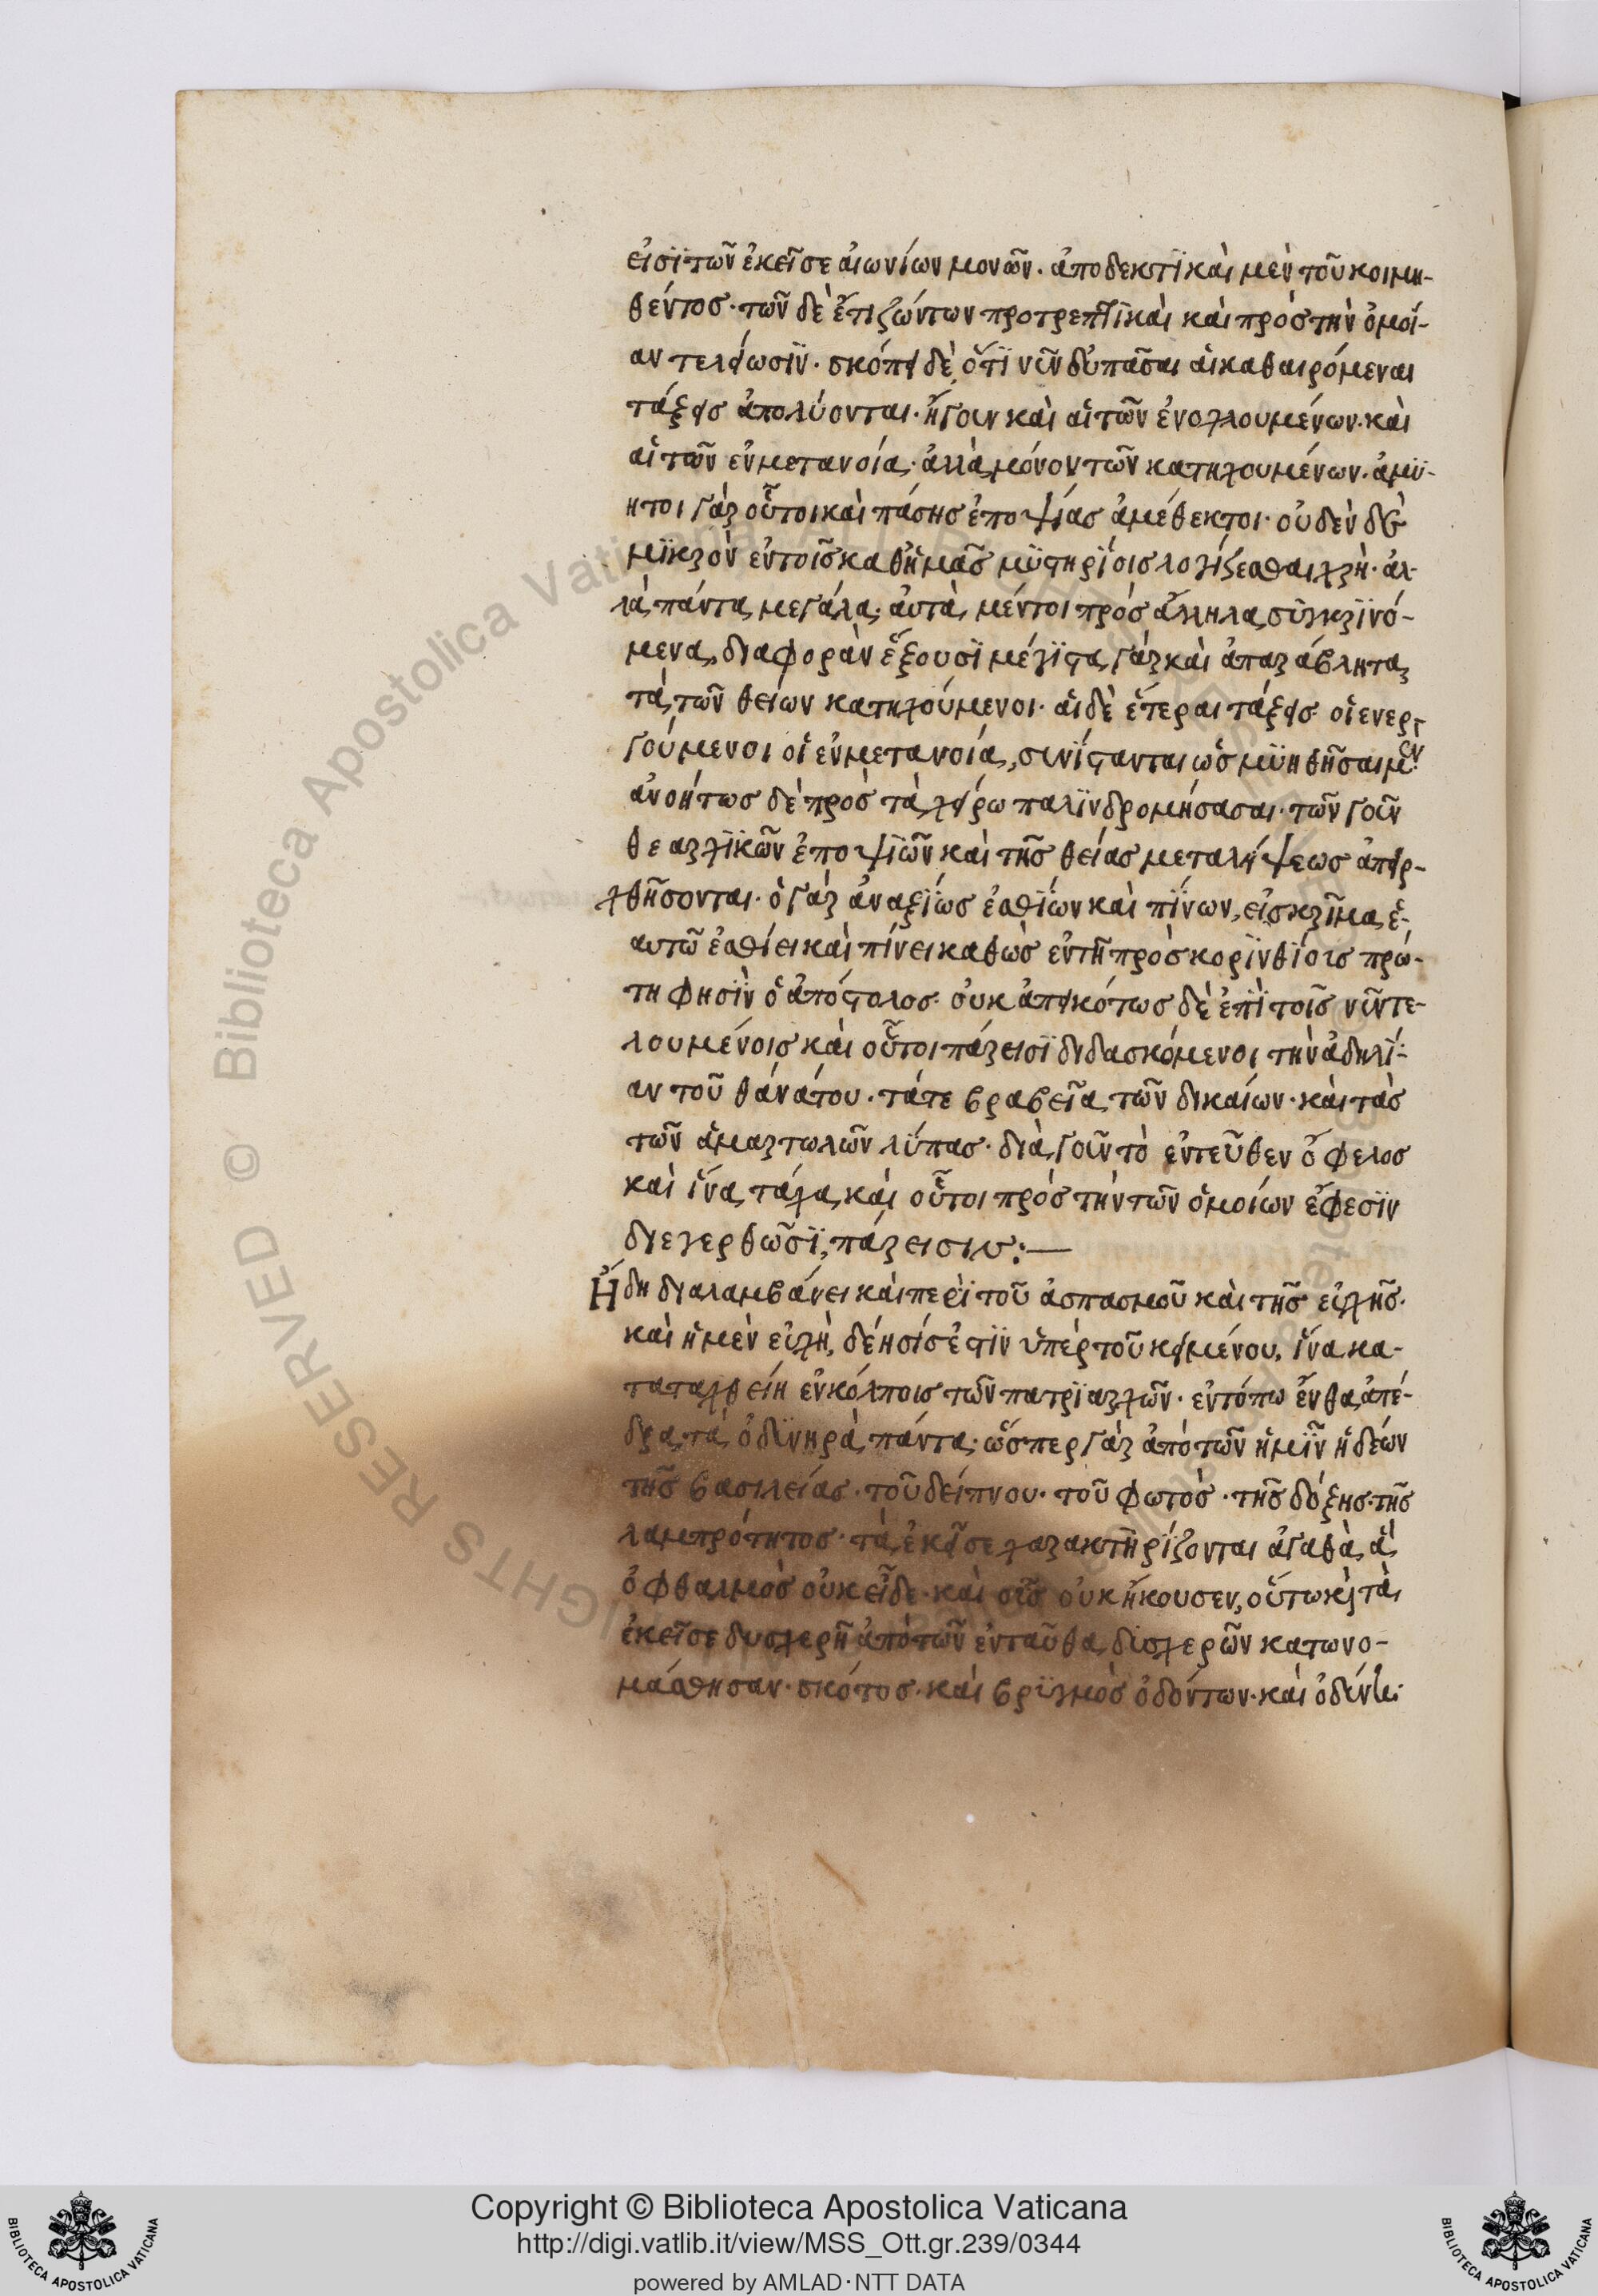 εἰσὶ τῶν ἐκεῖσε αἰωνίων μονῶν· ἀποδεκτικαὶ μὲν τοῦ κοιμη-
θέντος· τῶν δὲ ἔτι ζώντων προτρεπτικαὶ καὶ πρὸς τὴν ὁμοί-
αν τελείωσιν· σκόπει δὲ, ὅτι νῦν οὐ πᾶσαι αἱ καθαιρόμεναι
τάξεις ἀπολύονται· ἤγουν καὶ αἱ τῶν ἐνοχλουμένων· καὶ
αἱ τῶν ἐν μετανοία· ἀλλὰ μόνον τῶν κατηχουμένων· ἀμύ-
ητοι γὰρ οὗτοι καὶ πάσης ἐποψίας ἀμέθεκτοι· οὐδὲν δὲ
μικρὸν ἐν τοῖς καθ' ἡμᾶς μυστηρίοις λογίζεσθαι χρή· ἀλ-
λὰ πάντα μεγάλα· αὐτὰ μέντοι πρὸς ἄλληλα συγκρινό-
μενα, διαφορὰν ἕξουσι μέγιστα γὰρ καὶ ἀπαράβλητα
τὰ τῶν θείων κατηχούμενοι· αἱ δὲ ἕτεραι τάξεις οἱ ενερ-
γούμενοι οἱ ἐν μετανοία, συνίστανται ὡς μυηθῆσαι μὲν·
ἀνοήτως δὲ πρὸς τὰ χείρω παλινδρομήσασαι· τῶν γοῦν
θεαρχικῶν ἐποψιῶν καὶ τῆς θείας μεταλήψεως ἀπειρ-
χθήσονται· ὁ γὰρ ἀναξίως ἐσθίων καὶ πίνων, εἰς κρῖμα ἑ-
αυτῶ ἐσθίει καὶ πίνει καθὼς ἐν τῆ πρὸς κορινθίοις πρώ-
τη φησὶν ὁ ἀπόστολος· οὐκ ἀπεικότως δὲ ἐπὶ τοῖς νῦν τε-
λουμένοις καὶ οὗτοι πάρεισι διδασκόμενοι τὴν ἀδηλί-
αν τοῦ θάνάτου· τά τε βραβεῖα τῶν δικαίων· καὶ τὰς
τῶν ἁμαρτωλῶν λύπας· διὰ γοῦν τὸ ἐντεῦθεν ὄφελος
καὶ ἵνα τάχα καὶ οὗτοι πρὸς τὴν τῶν ὁμοίων ἔφεσιν
διεγερθῶσι, πάρεισιν:—
Ἤδη διαλαμβάνει καὶ περὶ τοῦ ἀσπασμοῦ καὶ τῆς εὐχῆς·
καὶ ἡ μὲν εὐχὴ, δέησίς ἐστιν ὑπὲρ τοῦ κειμένου, ἵνα κα-
ταταχθείη ἐν κόλποις τῶν πατριαρχῶν· ἐν τόπω ἔνθα ἀπέ-
δρα τὰ ὀδυνηρὰ πάντα· ὥσπερ γὰρ ἀπὸ τῶν ἡμῖν ἡδέων
τῆς βασιλείας· τοῦ δείπνου· τοῦ φωτὸς· τῆς δόξης· τῆς
λαμπρότητος· τὰ ἐκεῖσε χαρακτηρίζονται ἀγαθὰ, ἃ
ὀφθαλμὸς οὐκ εἶδε· καὶ οὖς οὐκ ἤκουσεν, οὕτω καὶ τὰ
ἐκεῖσε δυσχερῆ ἀπὸ τῶν ἐνταῦθα δυσχερῶν κατωνο-
μάσθησαν· σκότος· καὶ βρυγμὸς ὀδόντων· καὶ ὀδύνη·
Copyright © Biblioteca Apostolica Vaticana
http://digi.vatlib.it/view/MSS_Ott.gr.239/0344
powered by AMLAD·NTT DATA